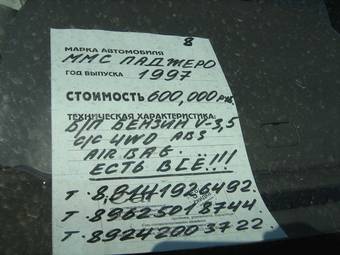 8
МАРКА АВТОМОБИЛЯ
ММС ПАДЖЕРО
ГОД ВЫПУСКА 1997
СТОИМОСТЬ 600,000 руб.
ТЕХНИЧЕСКАЯ ХАРАКТЕРИСТИКА:
Б/П БЕНЗИН V-3,5
С/С 4WD ABS
AIR BAG.
ЕСТЬ ВСЁ!!!
Т. 89141926492.
Т. 89625018744.
Т. 89242003722.